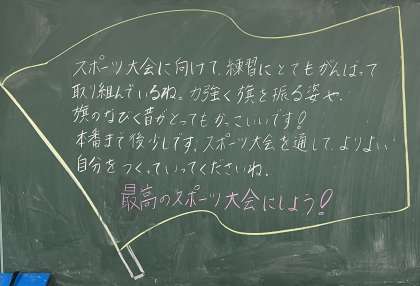 スポーツ大会に向けて、練習にとてもがんばって
取り組んでいるね。力強く旗を振る姿や、
旗のなびく音がとってもかっこいいです!
本番まで後少しです。スポーツ大会を通して、よりよい
自分をつくっていってくださいね。
最高のスポーツ大会にしよう!